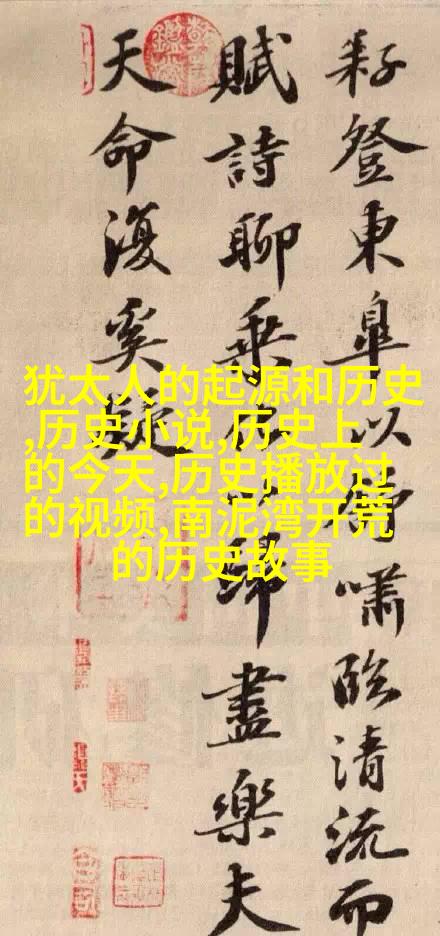 耔登東皋以舒嘯臨清流而
賦詩聊乘化以歸盡樂夫
天命復奚疑
犹太人的起源和历史
,历史小说,历史上
的今天,历史播放过
的视频,南泥湾开荒
的历史故事